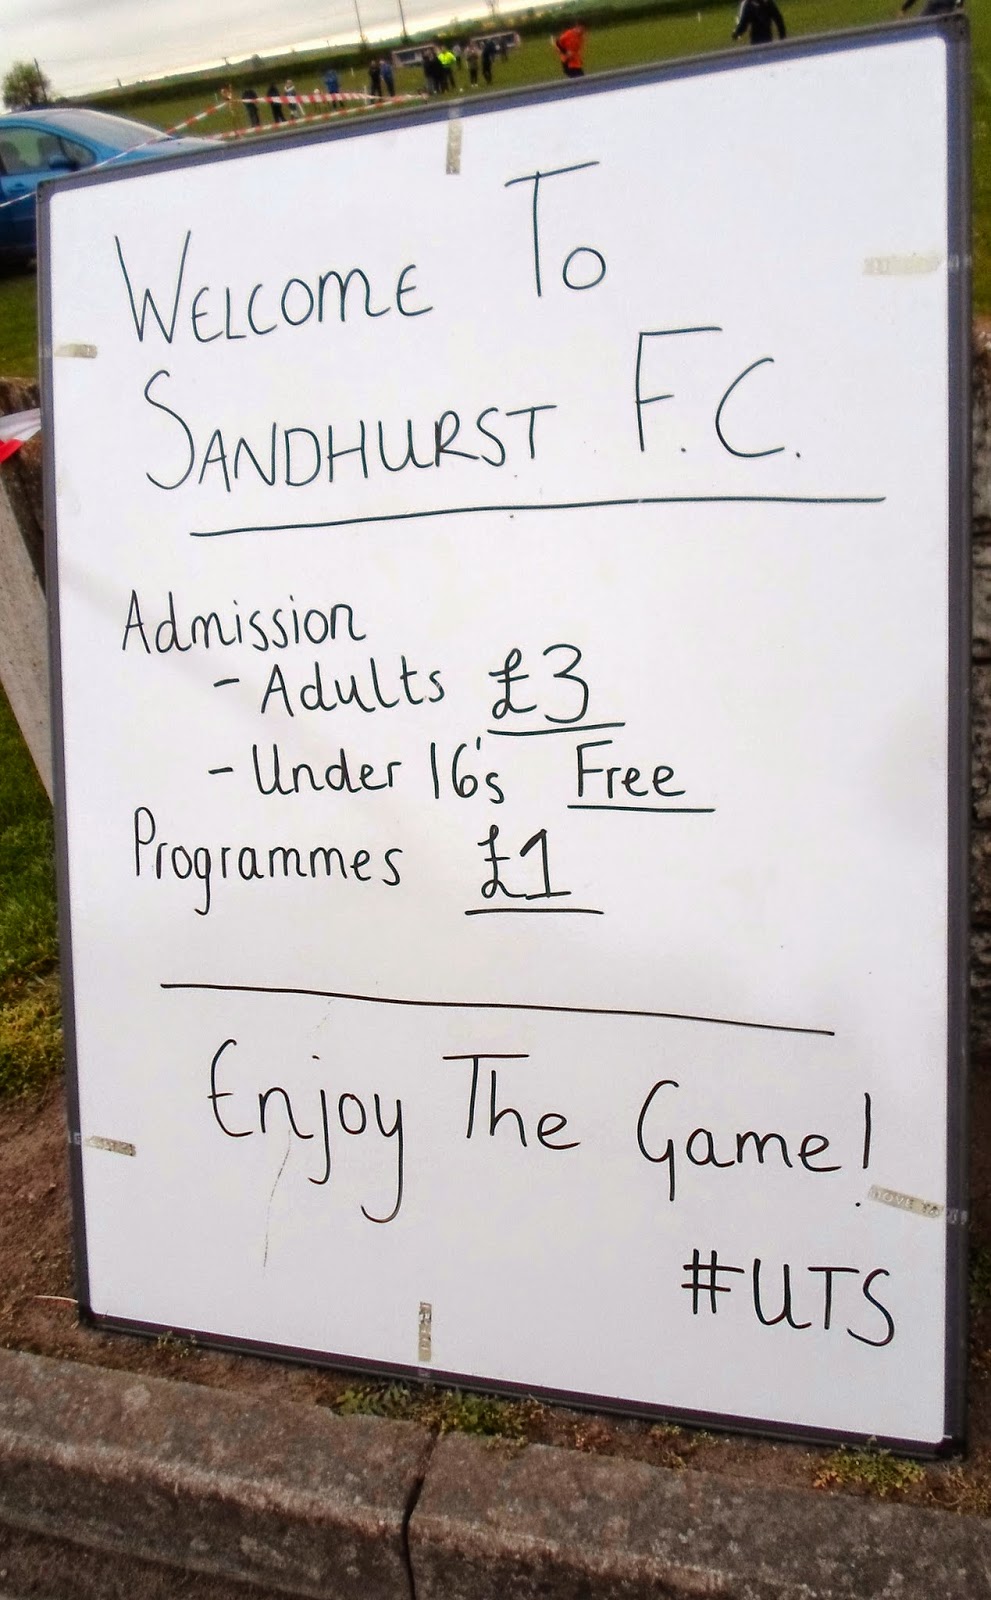 WELCOME TO
SANDHURST F.C.
Admission
- Adults £3
- Under 16's Free
Programmes £1
Enjoy The Game!
#UTS